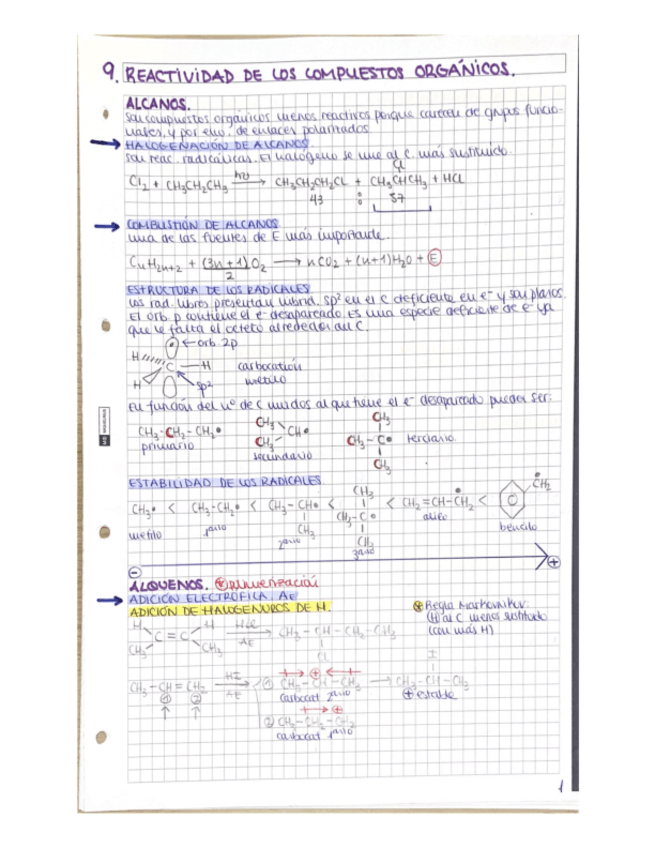 9. REACTIVIDAD DE LOS COMPUESTOS ORGÁNICOS.
ALCANOS.
son compuestos orgánicos menos reactivos porque carecen de grupos funcio-
nales, y por ello, de enlaces polarizados
HALOGENACIÓN DE ALCANOS
son reac. radicálicas. El halógeno se une al C. más sustituido.
Cl
Cl2 + CH3CH2CH3 hν → CH3CH2CH2Cl + CH3CHCH3 + HCl
43 : 57
COMBUSTIÓN DE ALCANOS
una de las fuentes de E más importante.
CnH2n+2 + (3n+1)/2 O2 → nCO2 + (n+1)H2O + E
ESTRUCTURA DE LOS RADICALES
los rad. libres presentan hibrid. sp2 en el C deficiente en e- y son planos.
El orb p contiene el e- desapareado Es una especie deficiente de e- ya
que le falta el octeto alrededor del C.
← orb 2p
H
C — H carbocatión
H sp2 metilo
En función del nº de C unidos al que tiene el e- desapareado pueden ser:
CH3-CH2-CH2•
primario
CH3
CH•
CH3
secundario
CH3
CH3-C•
CH3
terciario
ESTABILIDAD DE LOS RADICALES
CH3• < CH3-CH2• < CH3-CH• < CH3-C• < CH2=CH-CH2 < CH2
CH3 CH3
CH3
metilo 1ario 2ario 3ario alilo bencilo
- +
ALQUENOS. + polimerización
ADICIÓN ELECTRÓFILA. AE
ADICIÓN DE HALOGENUROS DE H.
+ Regla Markovnikov:
(H) al C menos sustituido
(con más H)
H H
C=C HCl → CH3-CH-CH2-CH3
CH3 CH3 AE Cl
CH3-CH=CH2 HI → ① CH3-CH-CH3 → CH3-CH-CH3
① ② AE carbocat 2ario I + estable
② CH3-CH2-CH2
carbocat 1ario
1